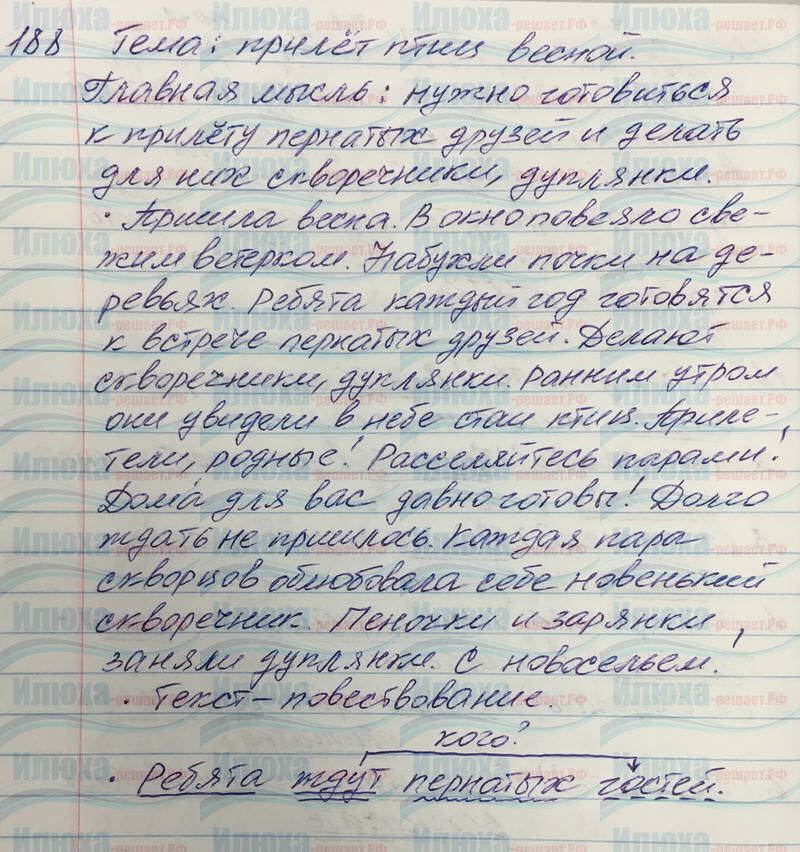 188 Тема: прилёт птиц весной.
Главная мысль: нужно готовиться
к прилёту пернатых друзей и делать
для них скворечники, дуплянки.
· Пришла весна. В окно повеяло све-
жим ветерком. Набухли почки на де-
ревьях. Ребята каждый год готовятся
к встрече пернатых друзей. Делают
скворечники, дуплянки. Ранним утром
они увидели в небе стаи птиц. Приле-
тели, родные! Расселяйтесь парами!
Дома для вас давно готовы! Долго
ждать не пришлось. Каждая пара
скворцов облюбовала себе новенький
скворечник. Пеночки и зарянки
заняли дуплянки. С новосельем!
· Текст – повествование.
кого?
· Ребята ждут пернатых гостей.
Илюха-решает.РФ